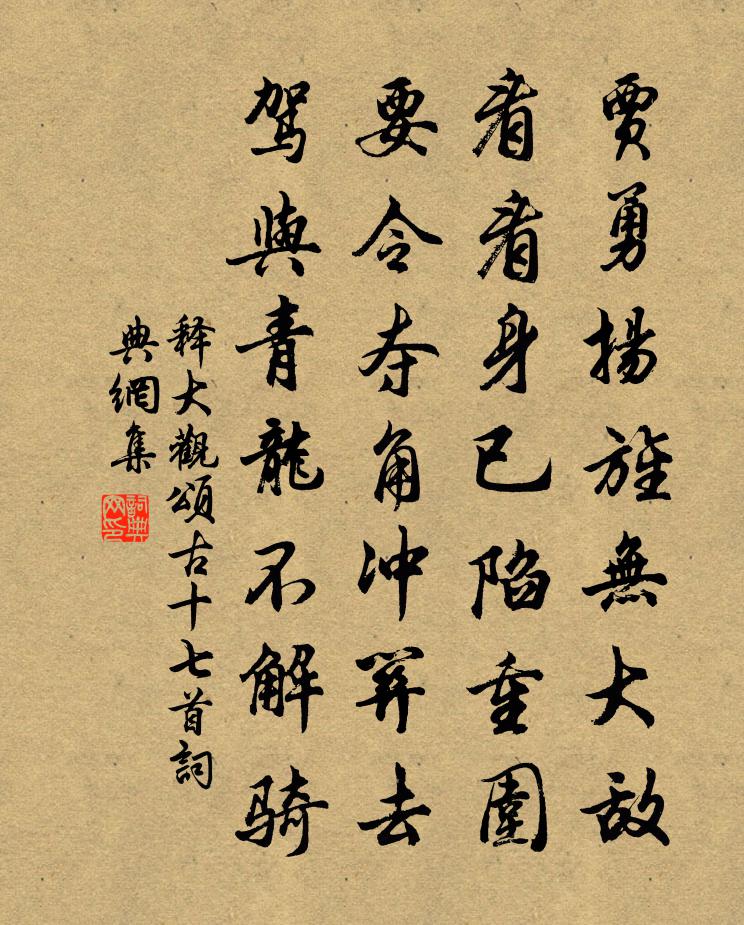 賈勇揚旌無大敌
看看身已陷重圍
要令夺角冲關去
驾與青龍不解骑
释大觀頌古十七首詞
典網集
詞典网印